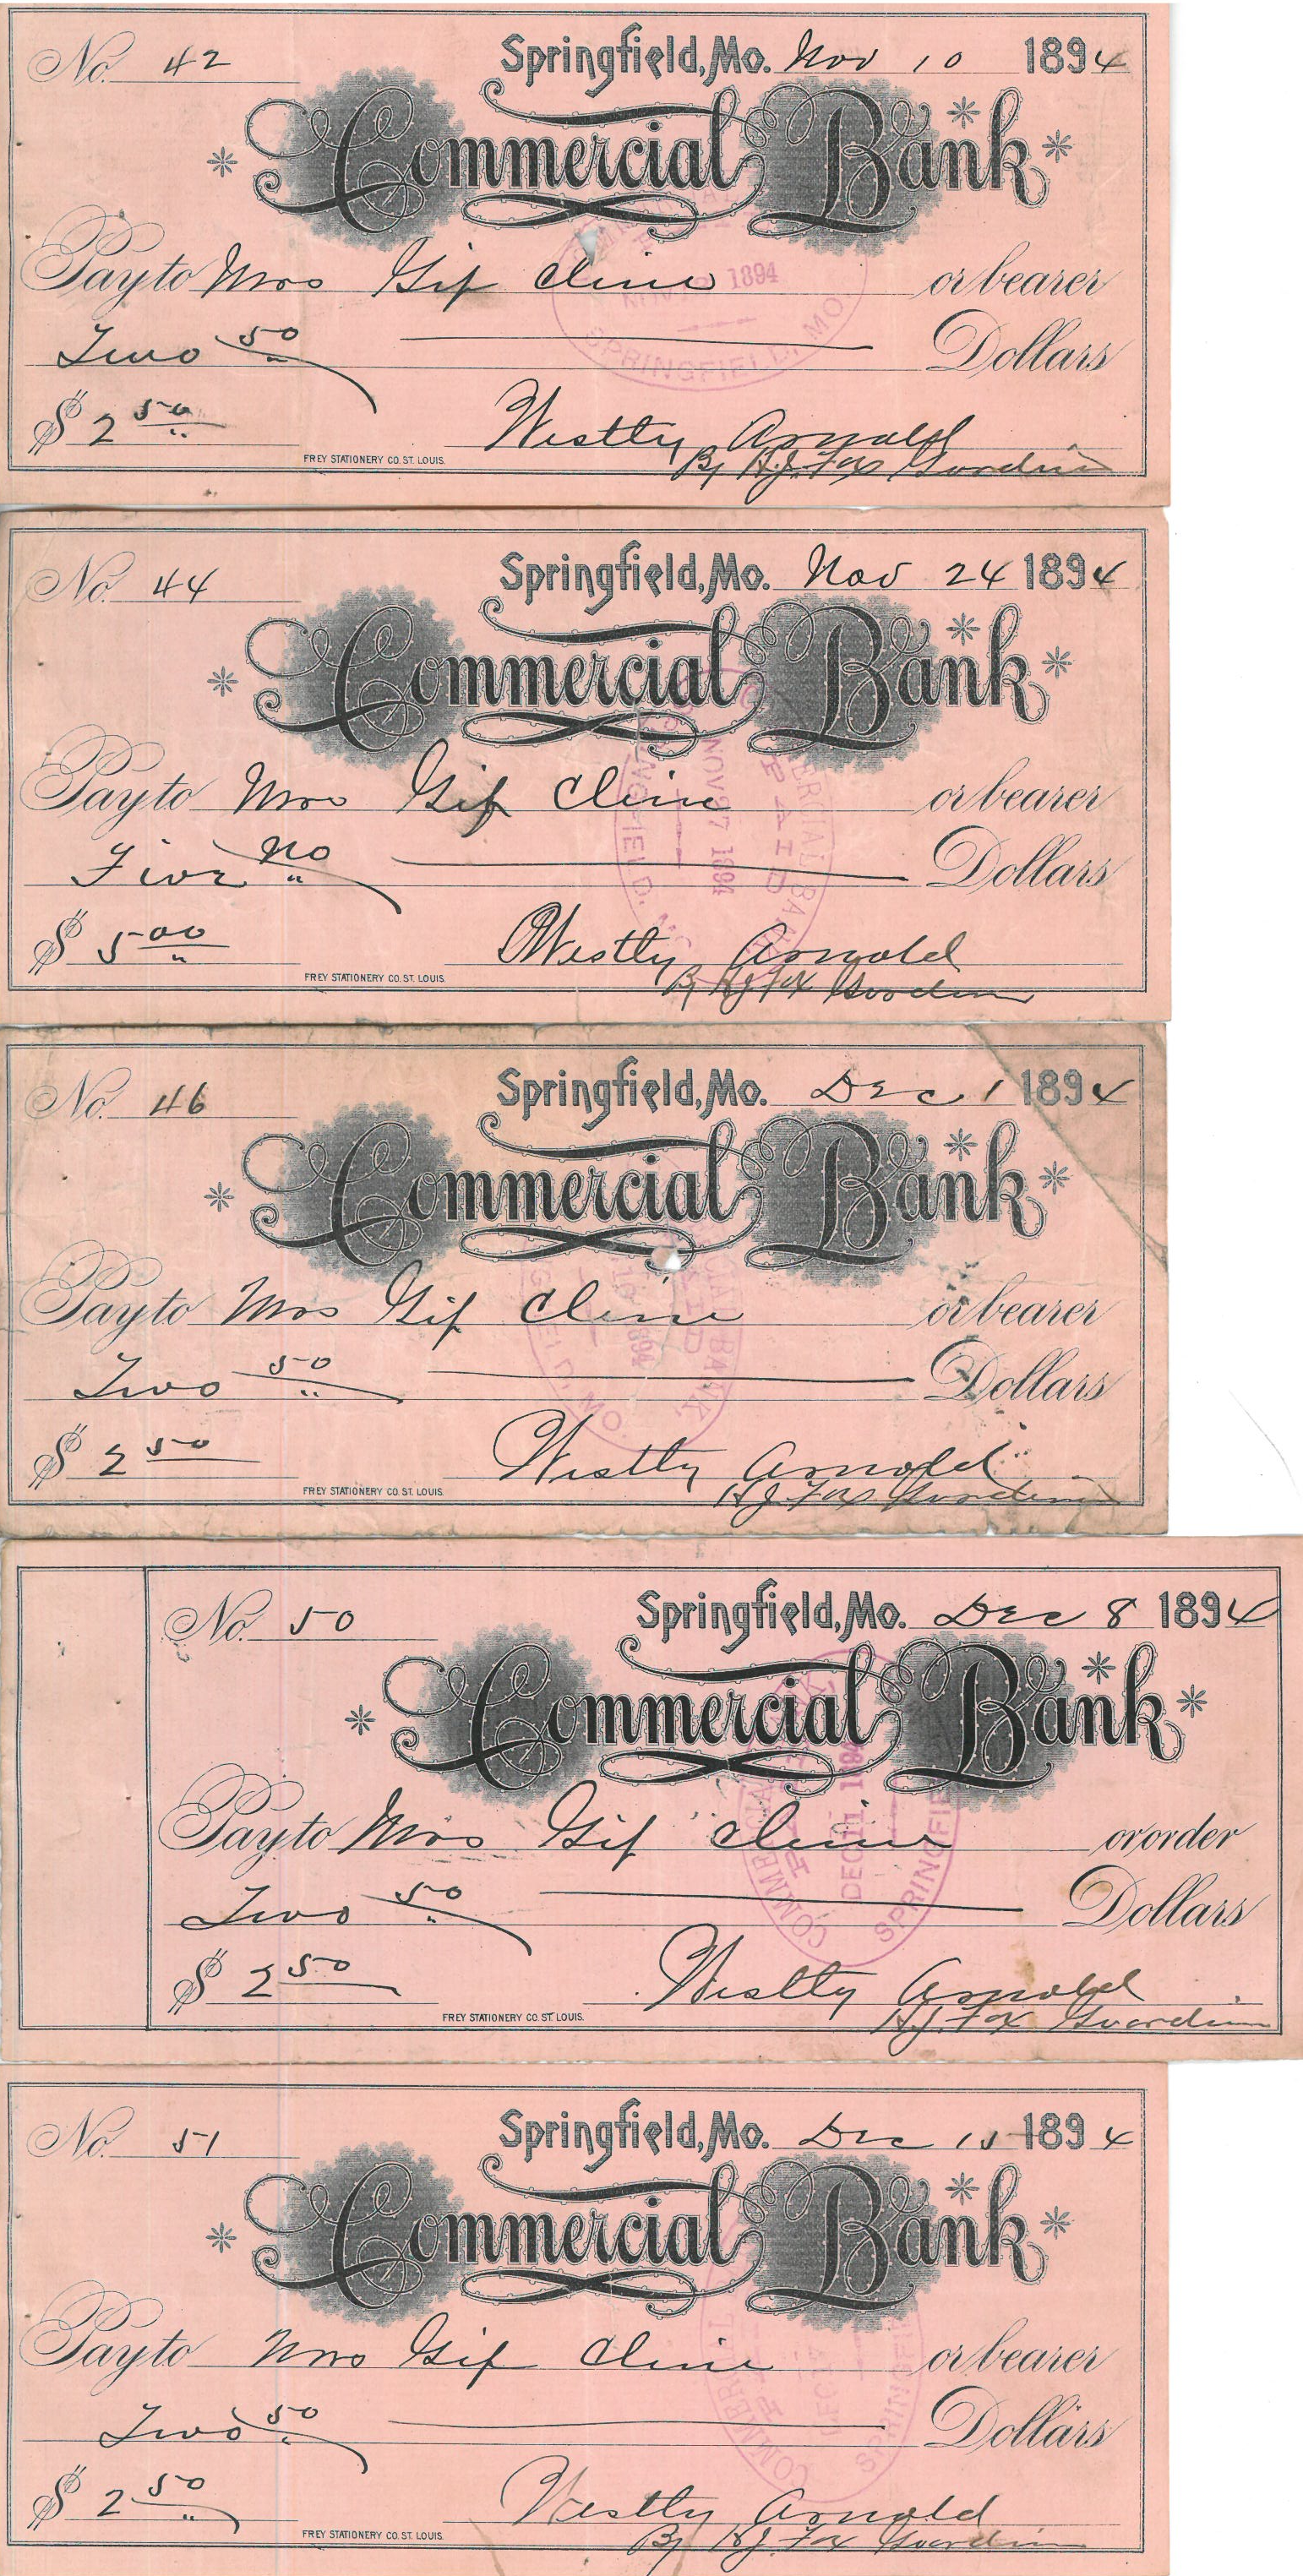 No. 42 Springfield, Mo. Nov 10 1894
Commercial Bank
Pay to Mrs Gif Cline or bearer
Two 50 Dollars
$ 2 50
Westly Arnold
FREY STATIONERY CO. ST. LOUIS.
By H.J. Fox Guardin
1894
SPRINGFIELD, MO
No. 44 Springfield, Mo. Nov 24 1894
Commercial Bank
Pay to Mrs Gif Cline or bearer
Five no Dollars
$ 5 00
Westly Arnold
FREY STATIONERY CO. ST. LOUIS.
By HJ Fox Guardin
PAID
NOV 27 1894
No. 46 Springfield, Mo. Dec 1 1894
Commercial Bank
Pay to Mrs Gif Cline or bearer
Two 50 Dollars
$ 2 50
Westly Arnold
FREY STATIONERY CO. ST. LOUIS.
H J Fox Guardin
No. 50 Springfield, Mo. Dec 8 1894
Commercial Bank
Pay to Mrs Gif Cline or order
Two 50 Dollars
$ 2 50
Westly Arnold
FREY STATIONERY CO. ST. LOUIS.
H.J. Fox Guardin
No. 51 Springfield, Mo. Dec 15 1894
Commercial Bank
Pay to Mrs Gif Cline or bearer
Two 50 Dollars
$ 2 50
Westly Arnold
FREY STATIONERY CO. ST. LOUIS.
By HJ Fox Guardin